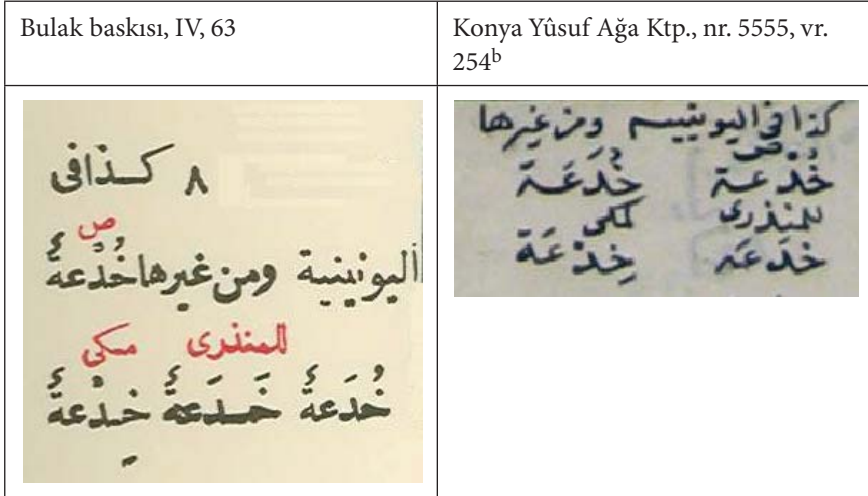 Bulak baskısı, IV, 63
Konya Yûsuf Ağa Ktp., nr. 5555, vr. 254b
٨ كذافى
ص
اليونينية ومن غيرها خُدْعةٌ
للمنذرى مكى
خُدَعةٌ خَدَعةٌ خِدْعةٌ
كذا في اليونينيه ومن غيرها
ص
خُدْعَة خُدَعَة
للمنذرى مكى
خَدَعَه خِدْعَة